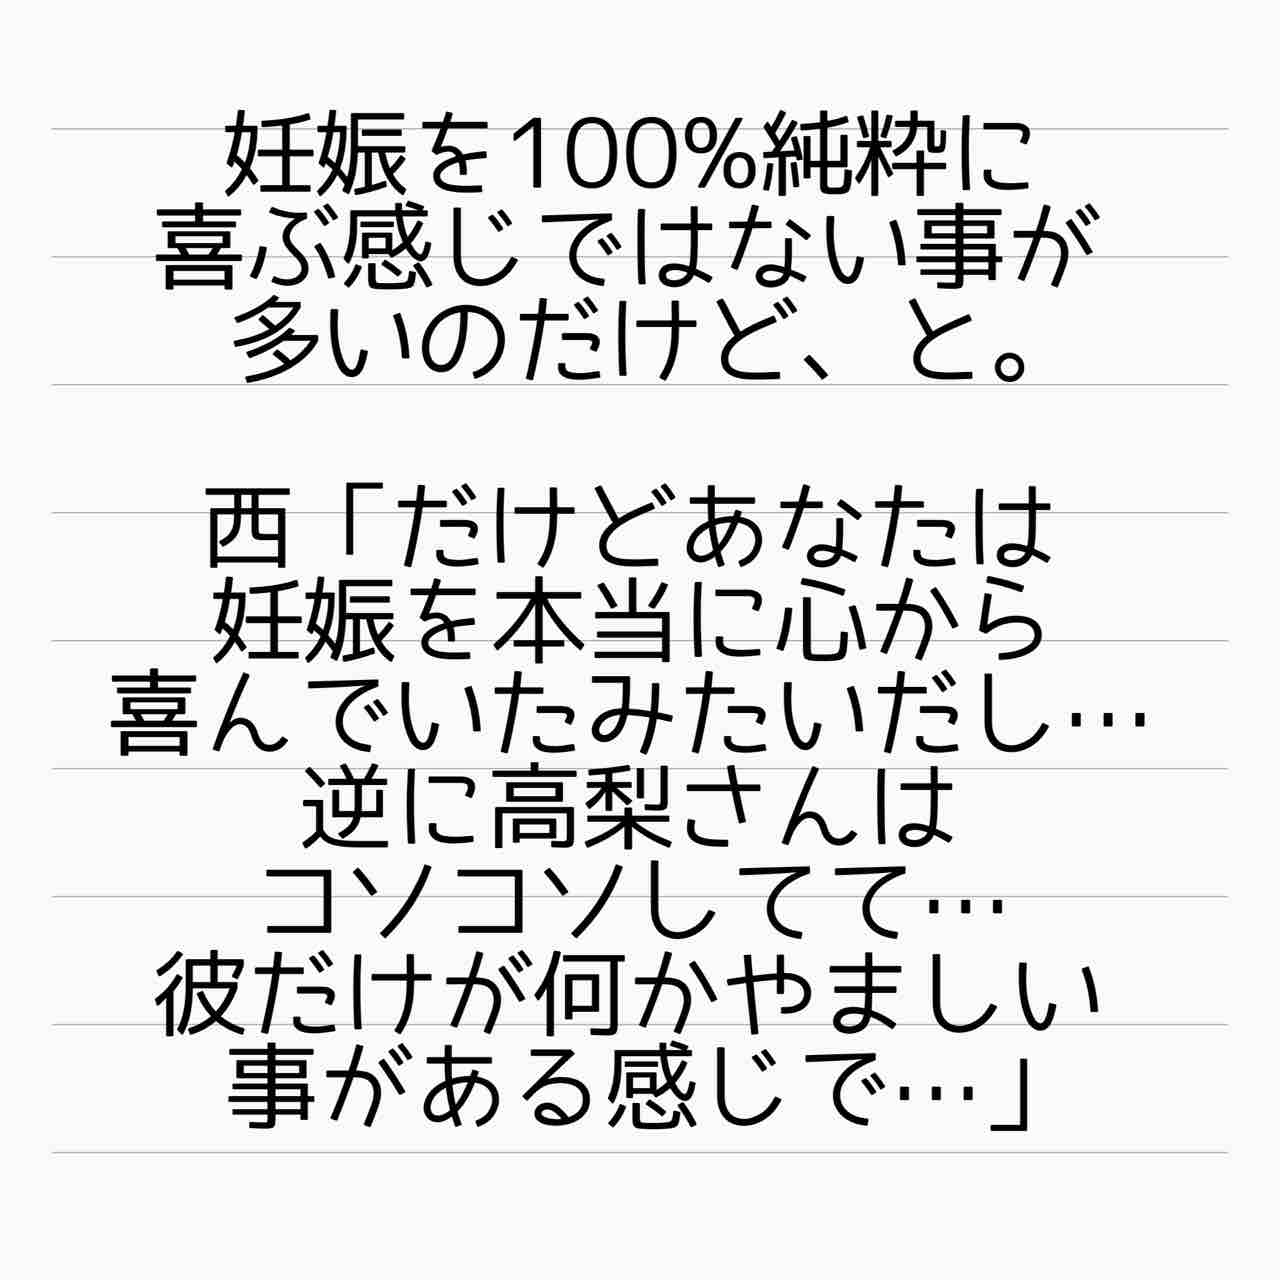 妊娠を100%純粋に
喜ぶ感じではない事が
多いのだけど、と。
西「だけどあなたは
妊娠を本当に心から
喜んでいたみたいだし…
逆に高梨さんは
コソコソしてて…
彼だけが何かやましい
事がある感じで…」